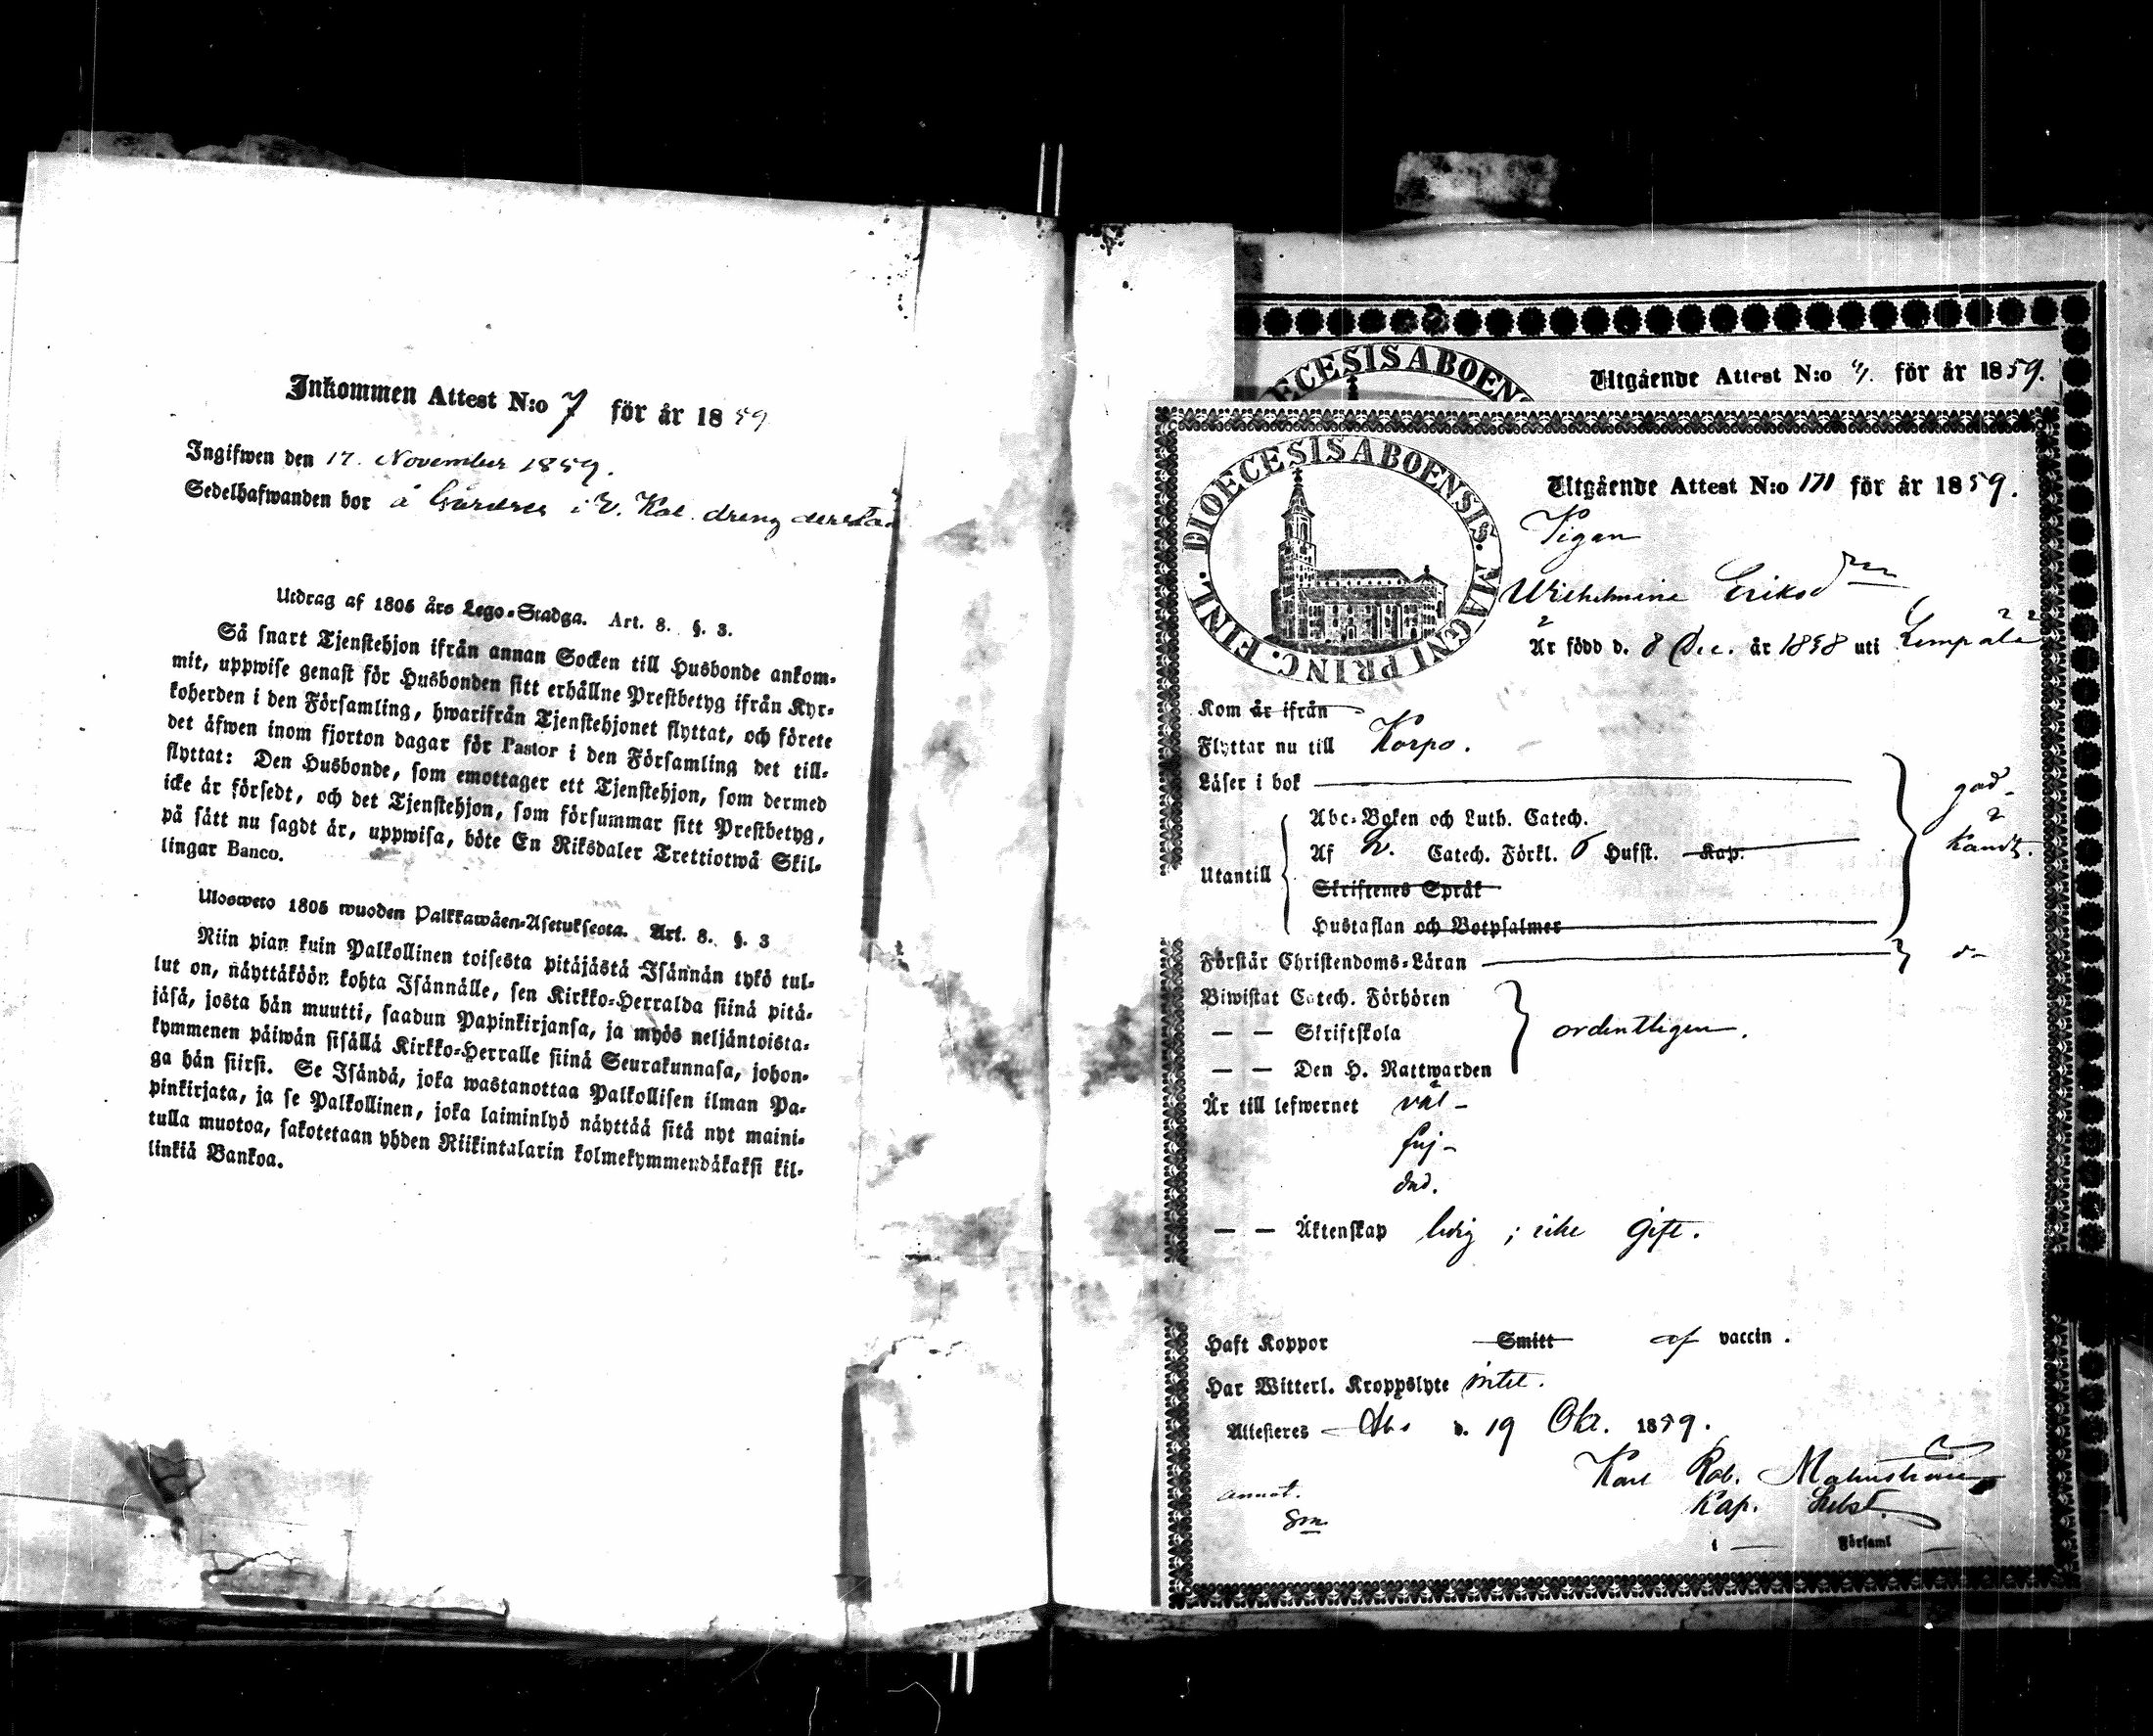 Inkommen Attest N:o 7 för år 1859
Ingifwen den 17. November 1859.
Sedelhafwanden bor å i V. Kal. dreng
Utdrag af 1805 års Lego-Stadga. Art. 8. §. 3.
Så snart Tjenstehjon ifrån annan Socken till Husbonde ankom-
mit, uppwise genast för Husbonden sitt erhållne Prestbetyg ifrån Kyr-
koherden i den Församling, hwarifrån Tjenstehjonet flyttat, och förete
det äfwen inom fjorton dagar för Pastor i den Församling det till-
flyttat: Den Husbonde, som emottager ett Tjenstehjon, som dermed
icke är försedt, och det Tjenstehjon, som försummar sitt Prestbetyg,
på sätt nu sagdt är, uppwisa, böte En Riksdaler Trettiotwå Skil-
lingar Banco.
Ulosweto 1805 wuoden Palkkawäen-Asetuksesta. Art. 8. §. 3
Niin pian kuin Palkollinen toisesta pitäjästä Isännän tykö tul-
lut on, näyttäköön kohta Isännälle, sen Kirkko-Herralda siinä pitä-
jäsä, josta hän muutti, saadun Papinkirjansa, ja myös neljäntoista-
kymmenen päiwän sisällä Kirkko-Herralle siinä Seurakunnasa, johon-
ga hän siirsi. Se Isändä, joka wastanottaa Palkollisen ilman Pa-
pinkirjata, ja se Palkollinen, joka laiminlyö näyttää sitä nyt maini-
tulla muotoa, sakotetaan yhden Riikintalarin kolmekymmendäkaksi kil-
linkiä Bankoa.
ECESIS ABOEN
Utgående Attest N:o för år 1859.
DIOECESIS ABOENSIS. MAGNI PRINC. FINL.
Utgående Attest N:o 171 för år 1859.
Pigan
Wilhelmina Eriksdr
Är född d. 8 Dec. år 1838 uti Lempälä
Kom år ifrån
Flyttar nu till Korpo.
Läser i bok
god-
Abc-Boken och Luth. Catech.
Utantill
Af Catech. Förkl. 6 Hufst. Kap.
Skriftenes Språk
Hustaflan och Botpsalmer
Förstår Christendoms-Läran
Biwistat Catech. Förhören
— — Skriftskola
ordentligen.
— — Den H. Nattwarden
Är till lefwernet väl-
frej-
dad.
— — Äktenskap ledig; icke gift.
Haft Koppor Smitt af vaccin.
Har Witterl. Kroppslyte intet.
Attesteres Åbo d. 19 Okt. 1859.
Karl Rob. Malmström
Kap. Subst.
annot.
Församl